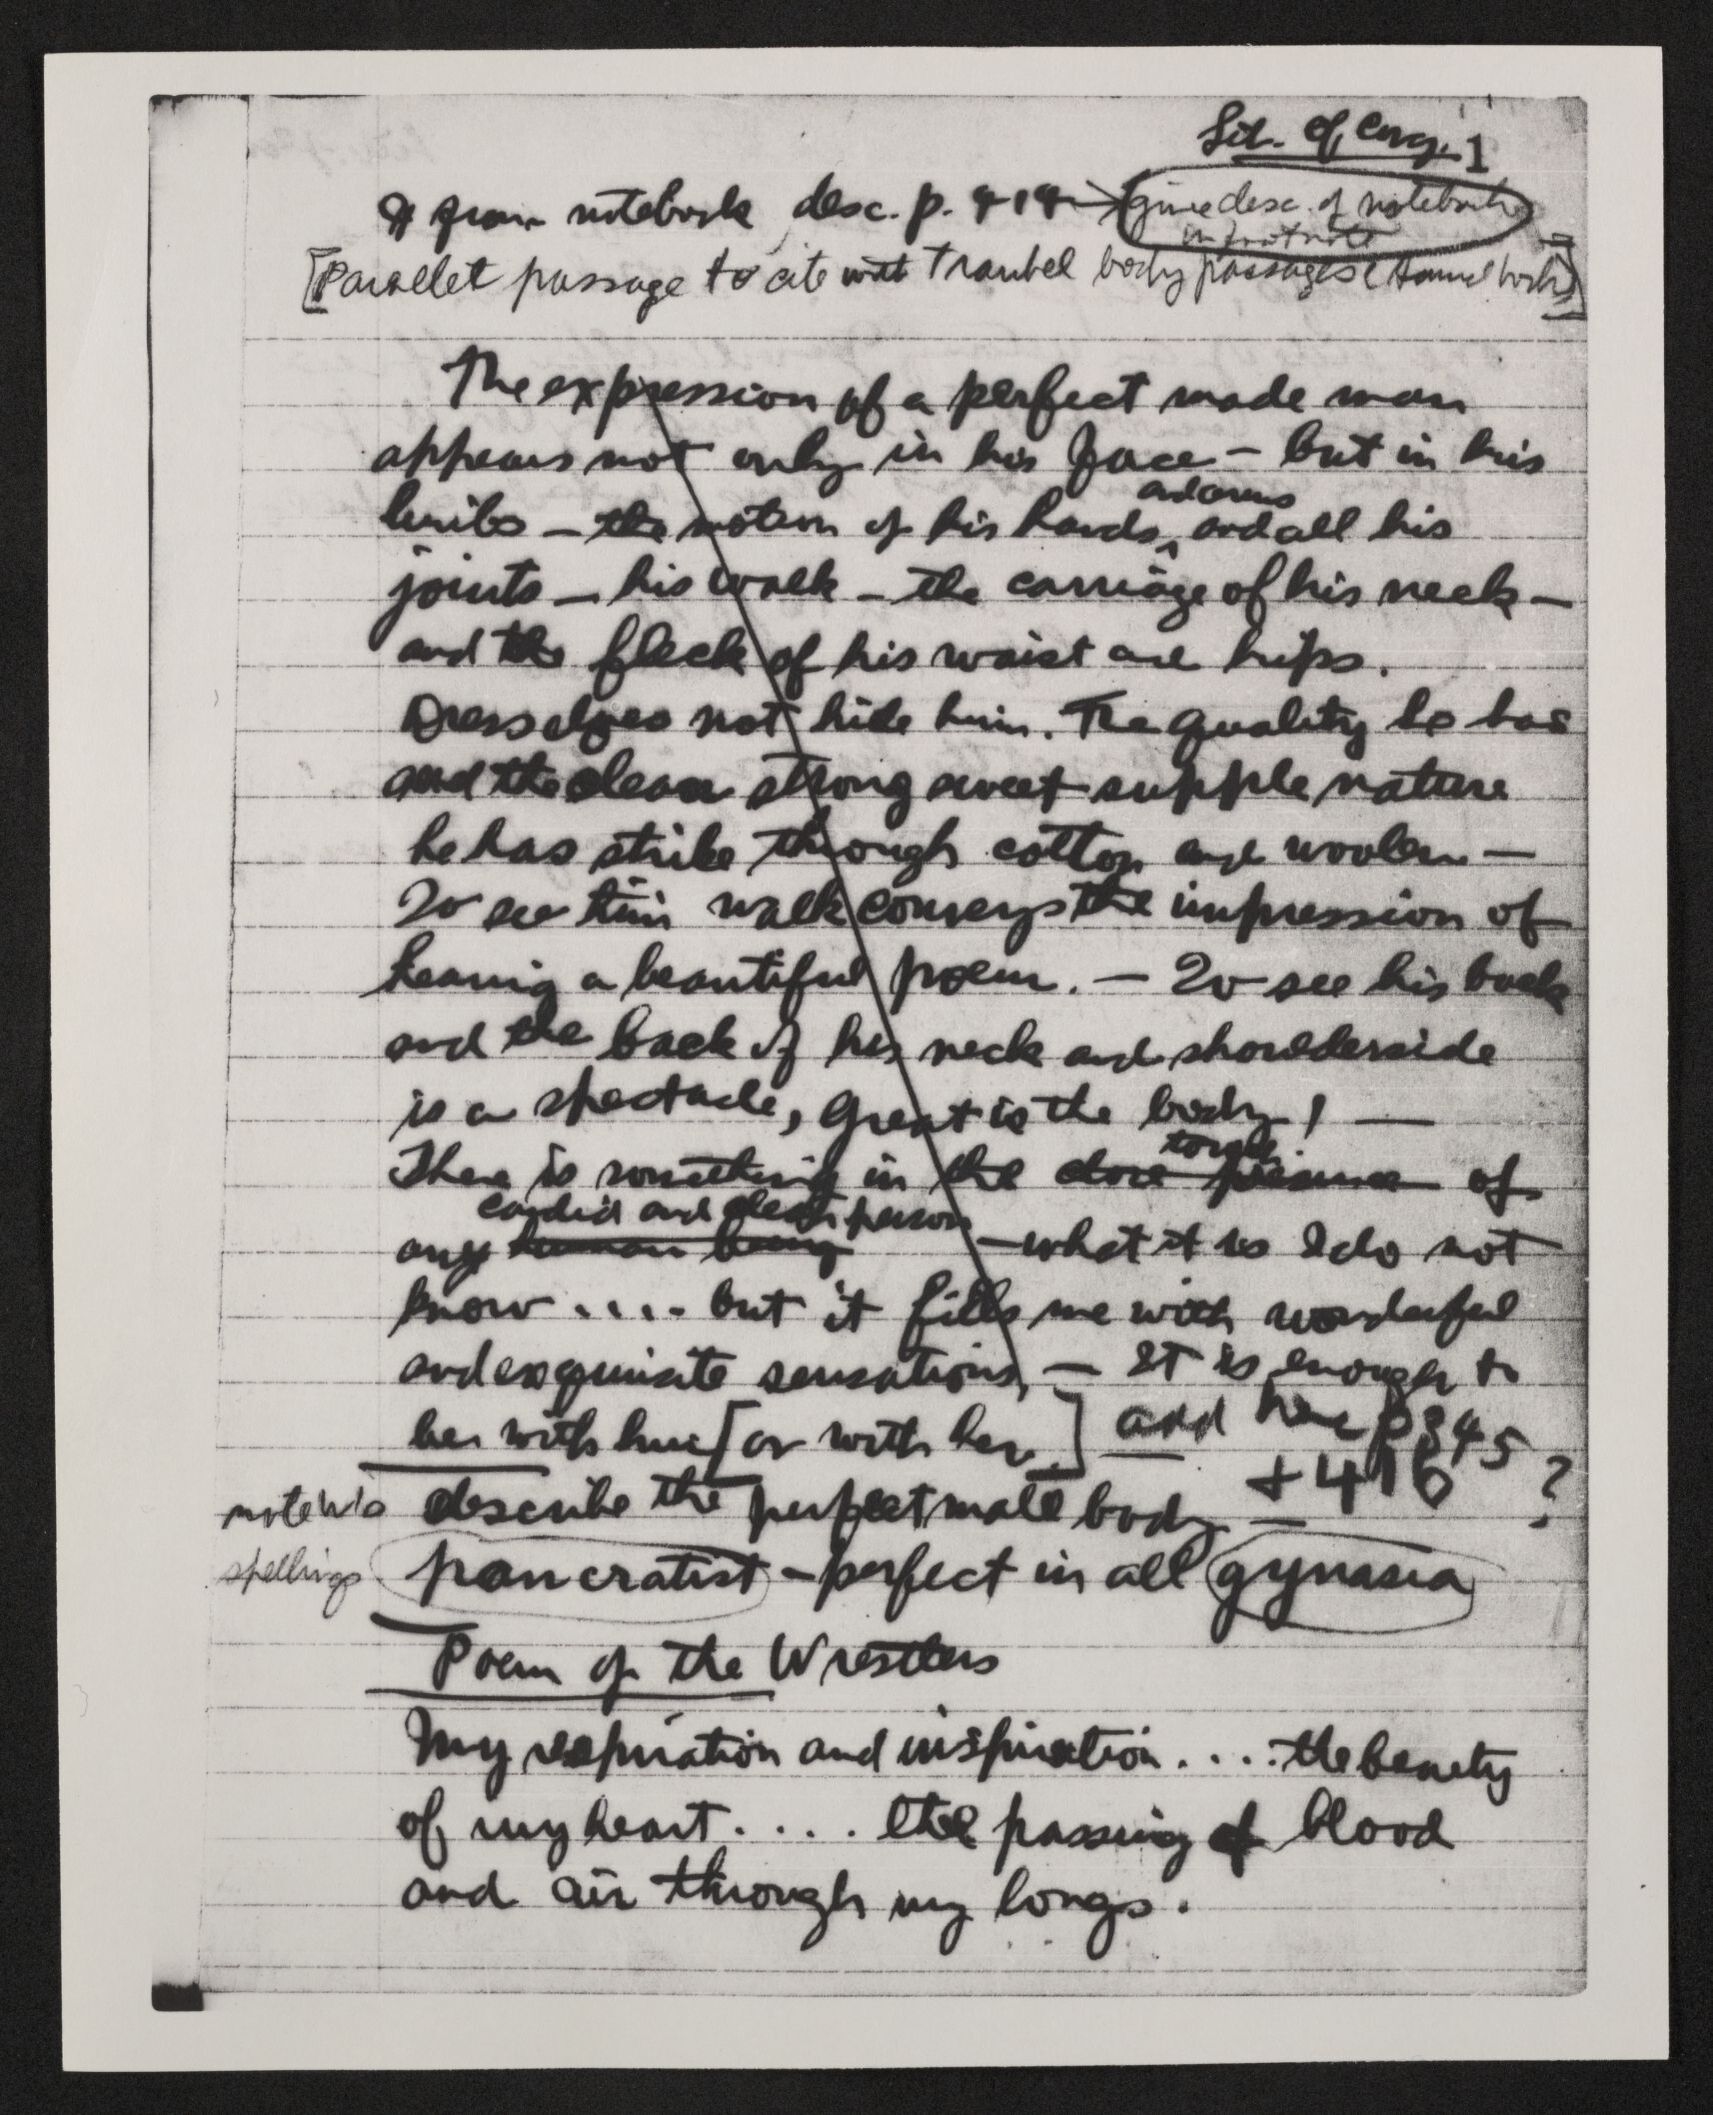 Lib. of Cong. 1
from notebook desc. p. → give desc. of notebook
in footnote
[Parallel passage to cite with Traubel body passages (
The expression of a perfect made man
appears not only in his face – but in his
limbs – the motion of his hands, and arms and all his
joints – his walk – the carriage of his neck –
and the fleck of his waist and hips.
Dress does not hide him. The quality he has
and the clean strong sweet supple nature
he has strike through cotton and woolen –
To see him walk conveys the impression of
hearing a beautiful poem. – To see his back
and the back of his neck and shoulderside
is a spectacle, Great is the body! —
There is something in the close presence touch of
any human being candid and clean person – what it is I do not
know . . . . but it fills me with wonderful
and exquisite sensations, – It is enough to
be with him [or with her.] add here p 345
+ 416 ?
note W's describe the perfect male body –
spellings pancratist – perfect in all gynasia
Poem of the Wrestlers
My respiration and inspiration . . . . the beating
of my heart . . . . the passing of blood
and air through my longs.